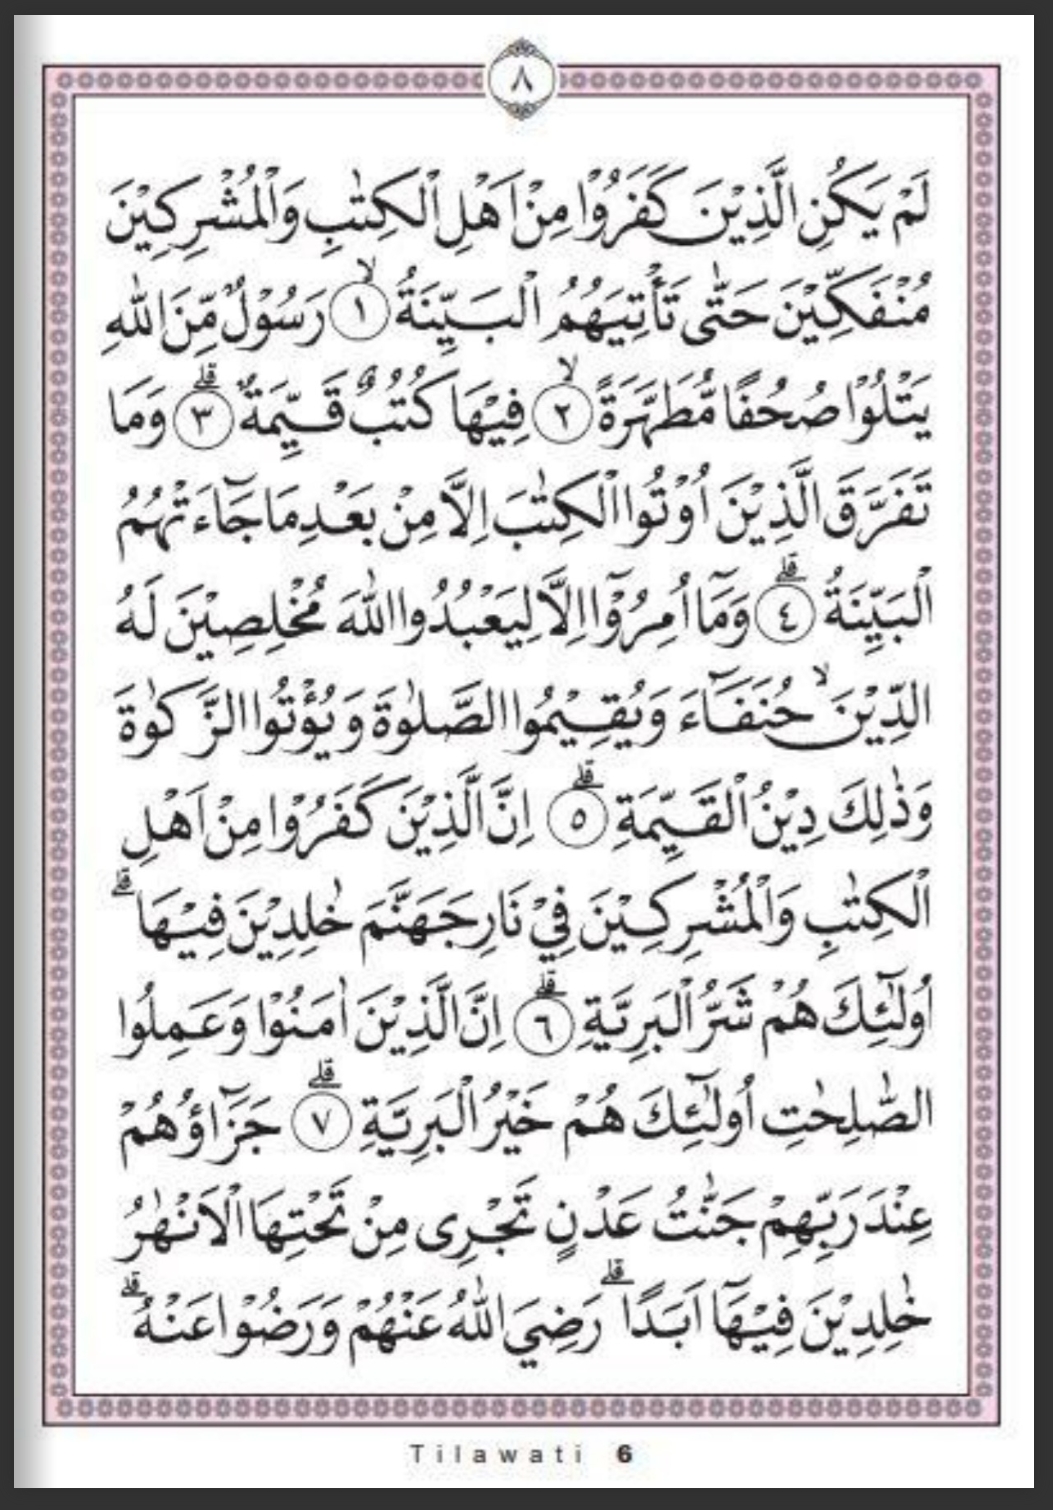 ٨
لَمْ يَكُنِ الَّذِيْنَ كَفَرُوْا مِنْ اَهْلِ الْكِتٰبِ وَالْمُشْرِكِيْنَ
مُنْفَكِّيْنَ حَتّٰى تَأْتِيَهُمُ الْبَيِّنَةُ ۙ ١ رَسُوْلٌ مِّنَ اللّٰهِ
يَتْلُوْا صُحُفًا مُّطَهَّرَةً ۙ ٢ فِيْهَا كُتُبٌ قَيِّمَةٌ ۗ ٣ وَمَا
تَفَرَّقَ الَّذِيْنَ اُوْتُوا الْكِتٰبَ اِلَّا مِنْ بَعْدِ مَا جَاۤءَتْهُمُ
الْبَيِّنَةُ ۗ ٤ وَمَآ اُمِرُوْٓا اِلَّا لِيَعْبُدُوا اللّٰهَ مُخْلِصِيْنَ لَهُ
الدِّيْنَ ۙ حُنَفَاۤءَ وَيُقِيْمُوا الصَّلٰوةَ وَيُؤْتُوا الزَّكٰوةَ
وَذٰلِكَ دِيْنُ الْقَيِّمَةِ ۗ ٥ اِنَّ الَّذِيْنَ كَفَرُوْا مِنْ اَهْلِ
الْكِتٰبِ وَالْمُشْرِكِيْنَ فِيْ نَارِ جَهَنَّمَ خٰلِدِيْنَ فِيْهَا ۗ
اُولٰۤىِٕكَ هُمْ شَرُّ الْبَرِيَّةِ ۗ ٦ اِنَّ الَّذِيْنَ اٰمَنُوْا وَعَمِلُوا
الصّٰلِحٰتِ اُولٰۤىِٕكَ هُمْ خَيْرُ الْبَرِيَّةِ ۗ ٧ جَزَاۤؤُهُمْ
عِنْدَ رَبِّهِمْ جَنّٰتُ عَدْنٍ تَجْرِى مِنْ تَحْتِهَا الْاَنْهٰرُ
خٰلِدِيْنَ فِيْهَآ اَبَدًا ۗ رَضِيَ اللّٰهُ عَنْهُمْ وَرَضُوْا عَنْهُ ۗ
Tilawati 6